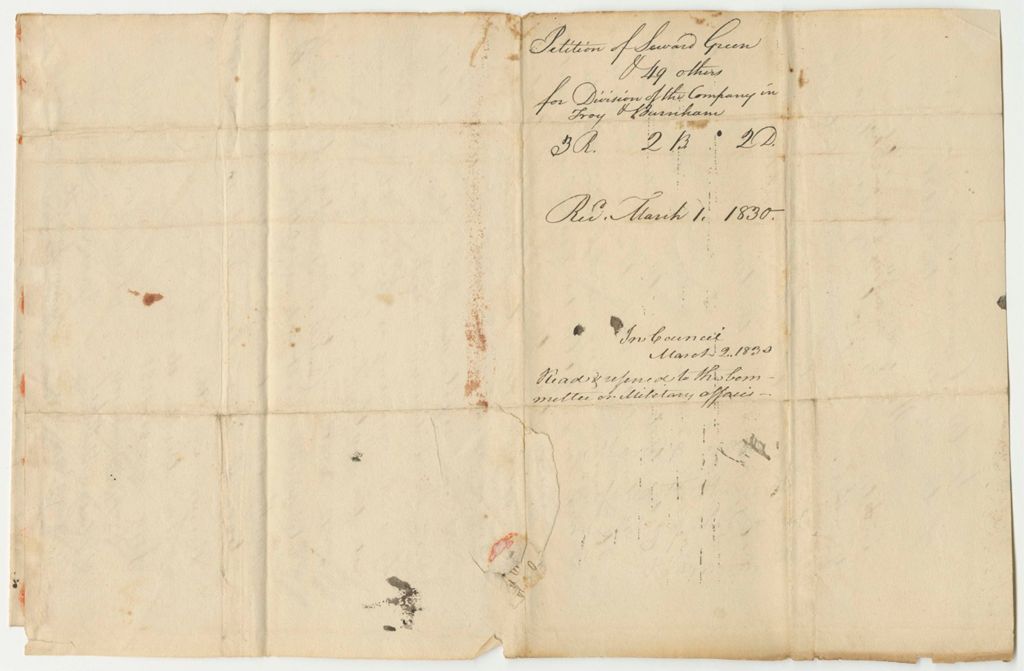 Petition of Seward Green
& 49 others
for Division of the Company in
Troy & Burnham
3 R. 2 B. 2 D.
Recd. March 1. 1830.
In Council
March 2. 1830
Read & referred to the Com-
mittee on Military affairs -